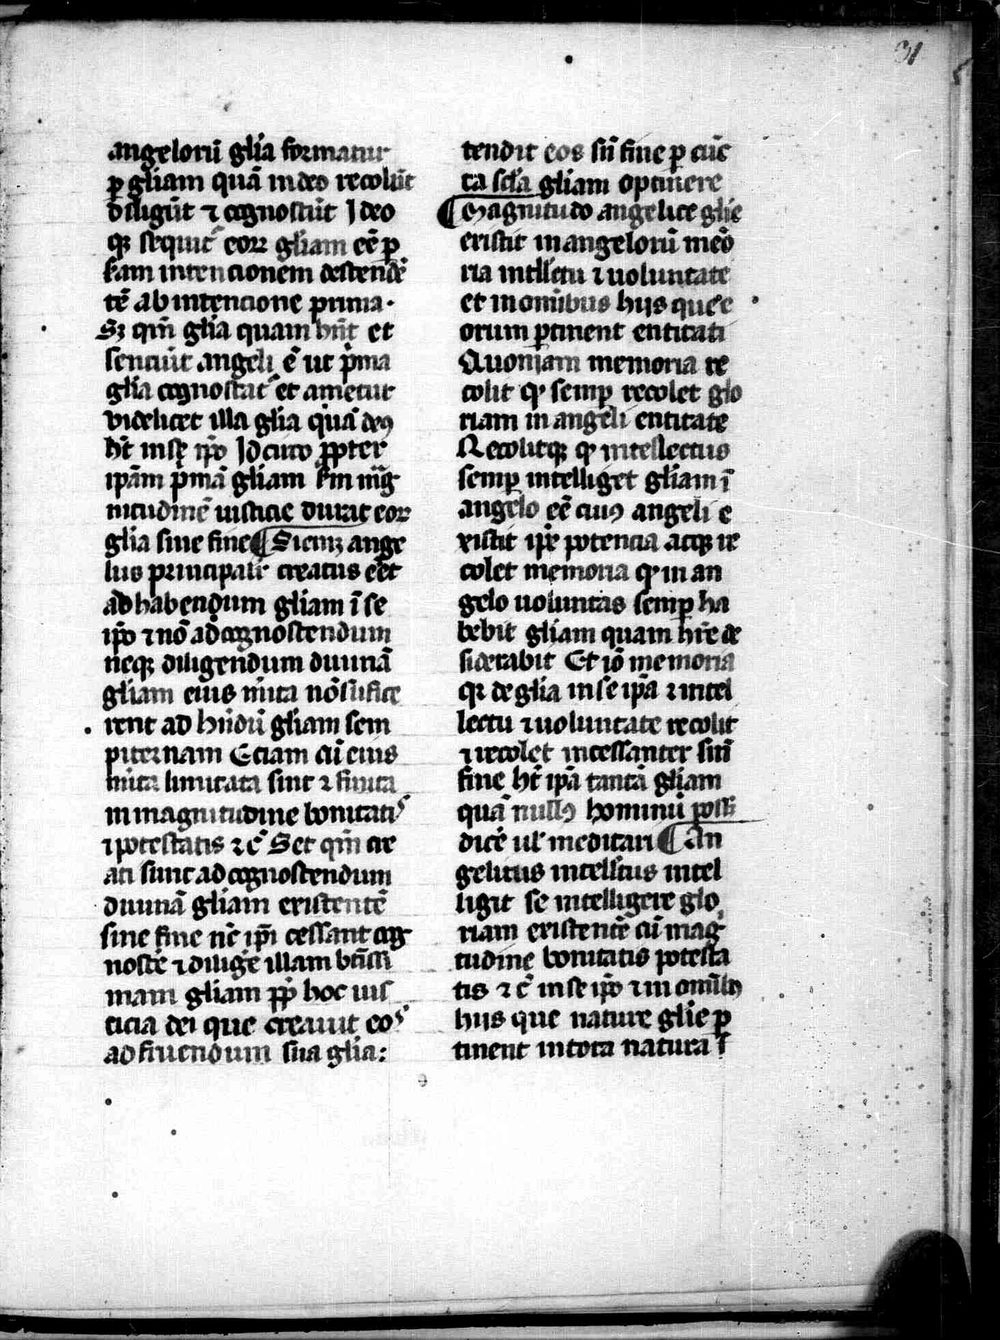 31
angelorũ glĩa formatur
ꝑ gliam quã in deo recolũt
diligũt ⁊ cognoscũt Ideo
qꝫ sequit̃ eoꝝ gliam eẽ ꝑ
ẽam intencionem descendẽ
tẽ ab intencione prima·
Sꝫ qm̃ glĩa quam hñt et
senciũt angeli ẽ ut p̃ma
glĩa cognoscat̃ et ametur
videlicet illa glĩa quã deꝰ
ht̃ in se ip̃o Idcirco ꝓpter
ip̃am p̃mã gliam
nitudinẽ iusticie durat eoꝝ
glĩa sine fine ¶ Si enĩ ange
lus principalr̃ creatus eẽt
ad habendum gliam ĩ se
ip̃o ⁊ nõ ad cognoscendum
neqꝫ diligendum diuinã
gliam eius mĩta nõ suffice
rent ad hñdũ gliam sem
piternam Eciam cũ eius
mĩta limitata sint ⁊ finita
in magnitudine bonitatis
⁊ potestatis ⁊ c̃ Set qm̃ cre
ati sunt ad cognoscendum
diuinã gliam existentẽ
sine fine nc̃ ip̃i cessant cog
noscẽ ⁊ diligẽ illam bt̃issi
mam gliam ꝓp̃ hoc ius
ticia dei que creauit eos
ad fruendum sua glĩa:
tendit eos sñ fine ꝑ cũc
ta scĩa gliam optinere
¶ Magnitudo angelice glĩe
existit in angelorũ meõ
ria intllc̃tu ⁊ uoluntate
et in omĩbus hijs que e
orum ꝑtinent entitati
Quoniam memoria re
colit qꝫ semꝑ recolet glo
riam in angeli entitate
Recolitqꝫ qꝫ intellectus
semꝑ intelliget gliam ĩ
angelo eẽ cuiꝰ angeli e
xistit ip̃e potencia atqꝫ re
colet memoria qꝫ in an
gelo uoluntas semꝑ ha
bebit gliam quam hr̃e de
siderabit Et iõ memoria
qꝫ de glĩa in se ip̃a ⁊ intel
lectu ⁊ uoluntate recolit
⁊ recolet incessanter sñ
fine ht̃ ip̃a tantã gliam
quã nullꝰ hominũ poss̃
dicẽ ul̃ meditari ¶ An
gelicus intellc̃us intel
ligit se intelligere glo
riam existentẽ cũ mag
tudine bonitatis potesta
tis ⁊ c̃ in se ip̃o ⁊ in omĩbꝰ
hijs que nature glĩe ꝑ
tinent in tota natura ĩ